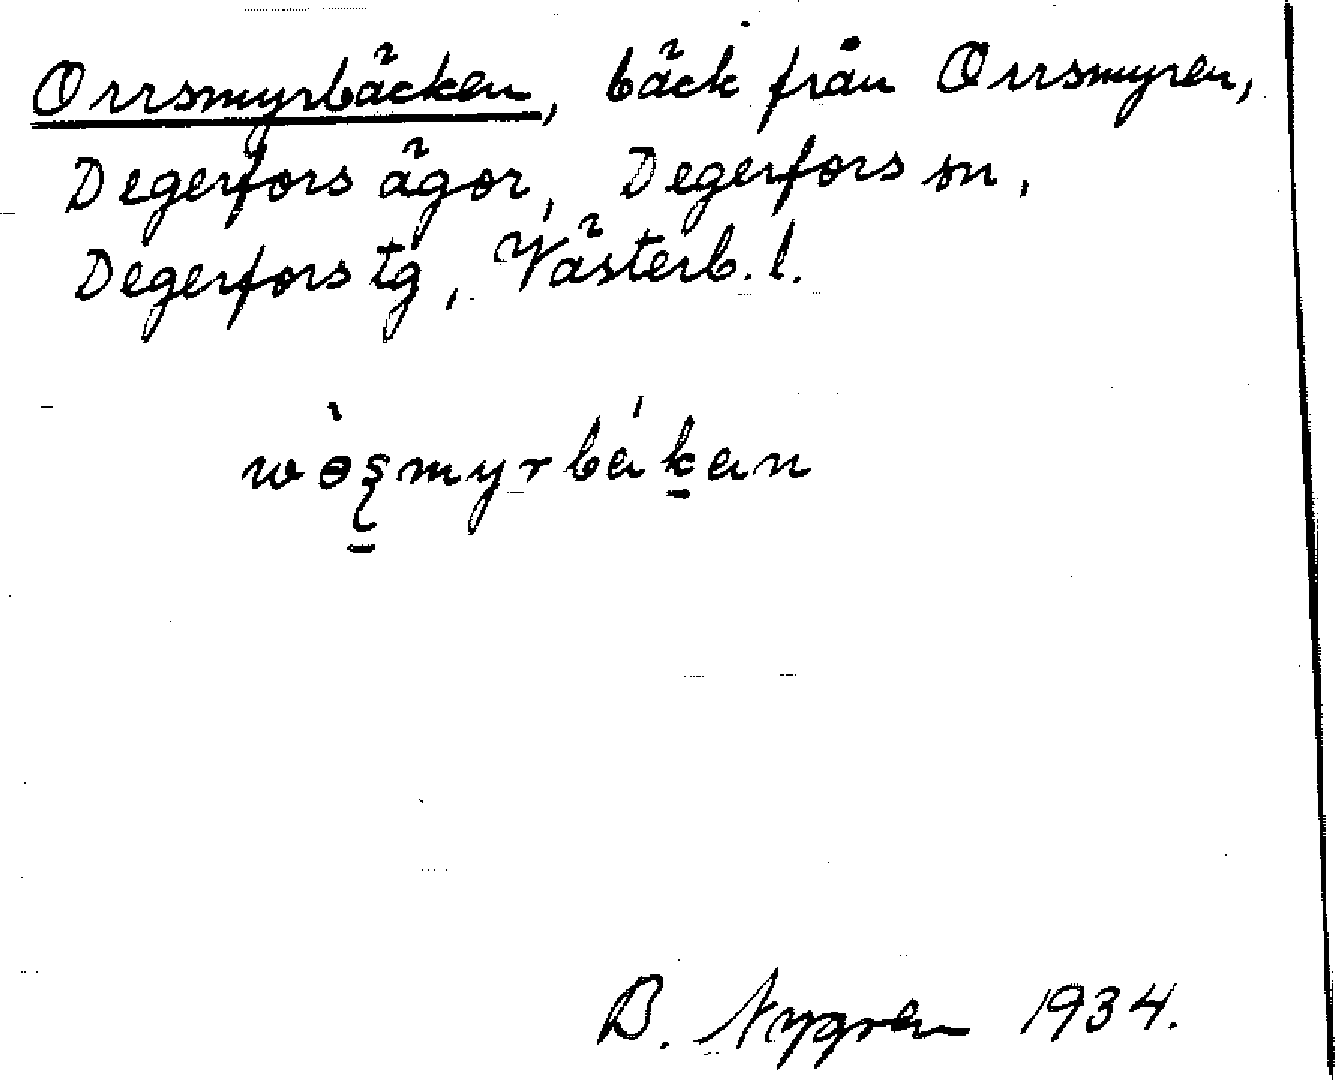 Orrsmyrbäcken, bäck från Orrsmyren,
Degerfors ägor, Degerfors sn,
Degerfors tg, Västerb. l.
B. Nygren 1934.